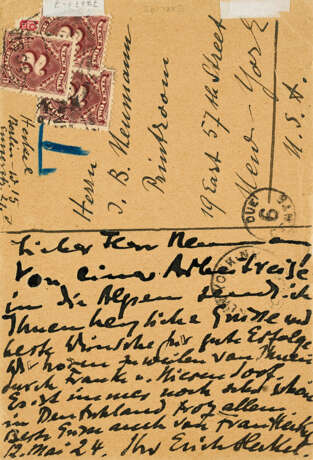 Herrn
J. B. Neumann
Printroom
19 East 57th Street
New-York
U.S.A.
Heckel
Berlin
T
2
2
2
DUE
6
CENTS
Lieber Herr Neumann
Von einer Arbeitsreise
in die Alpen sende ich
Ihnen herzliche Grüsse und
beste Wünsche für gute Erfolge
Wir hören zuweilen von Ihnen
durch Frank u. Nierendorf.
Es ist immer noch sehr schön
in Deutschland trotz allem.
Beste Grüsse auch von Frau Heckel
12. Mai 24. Ihr Erich Heckel.